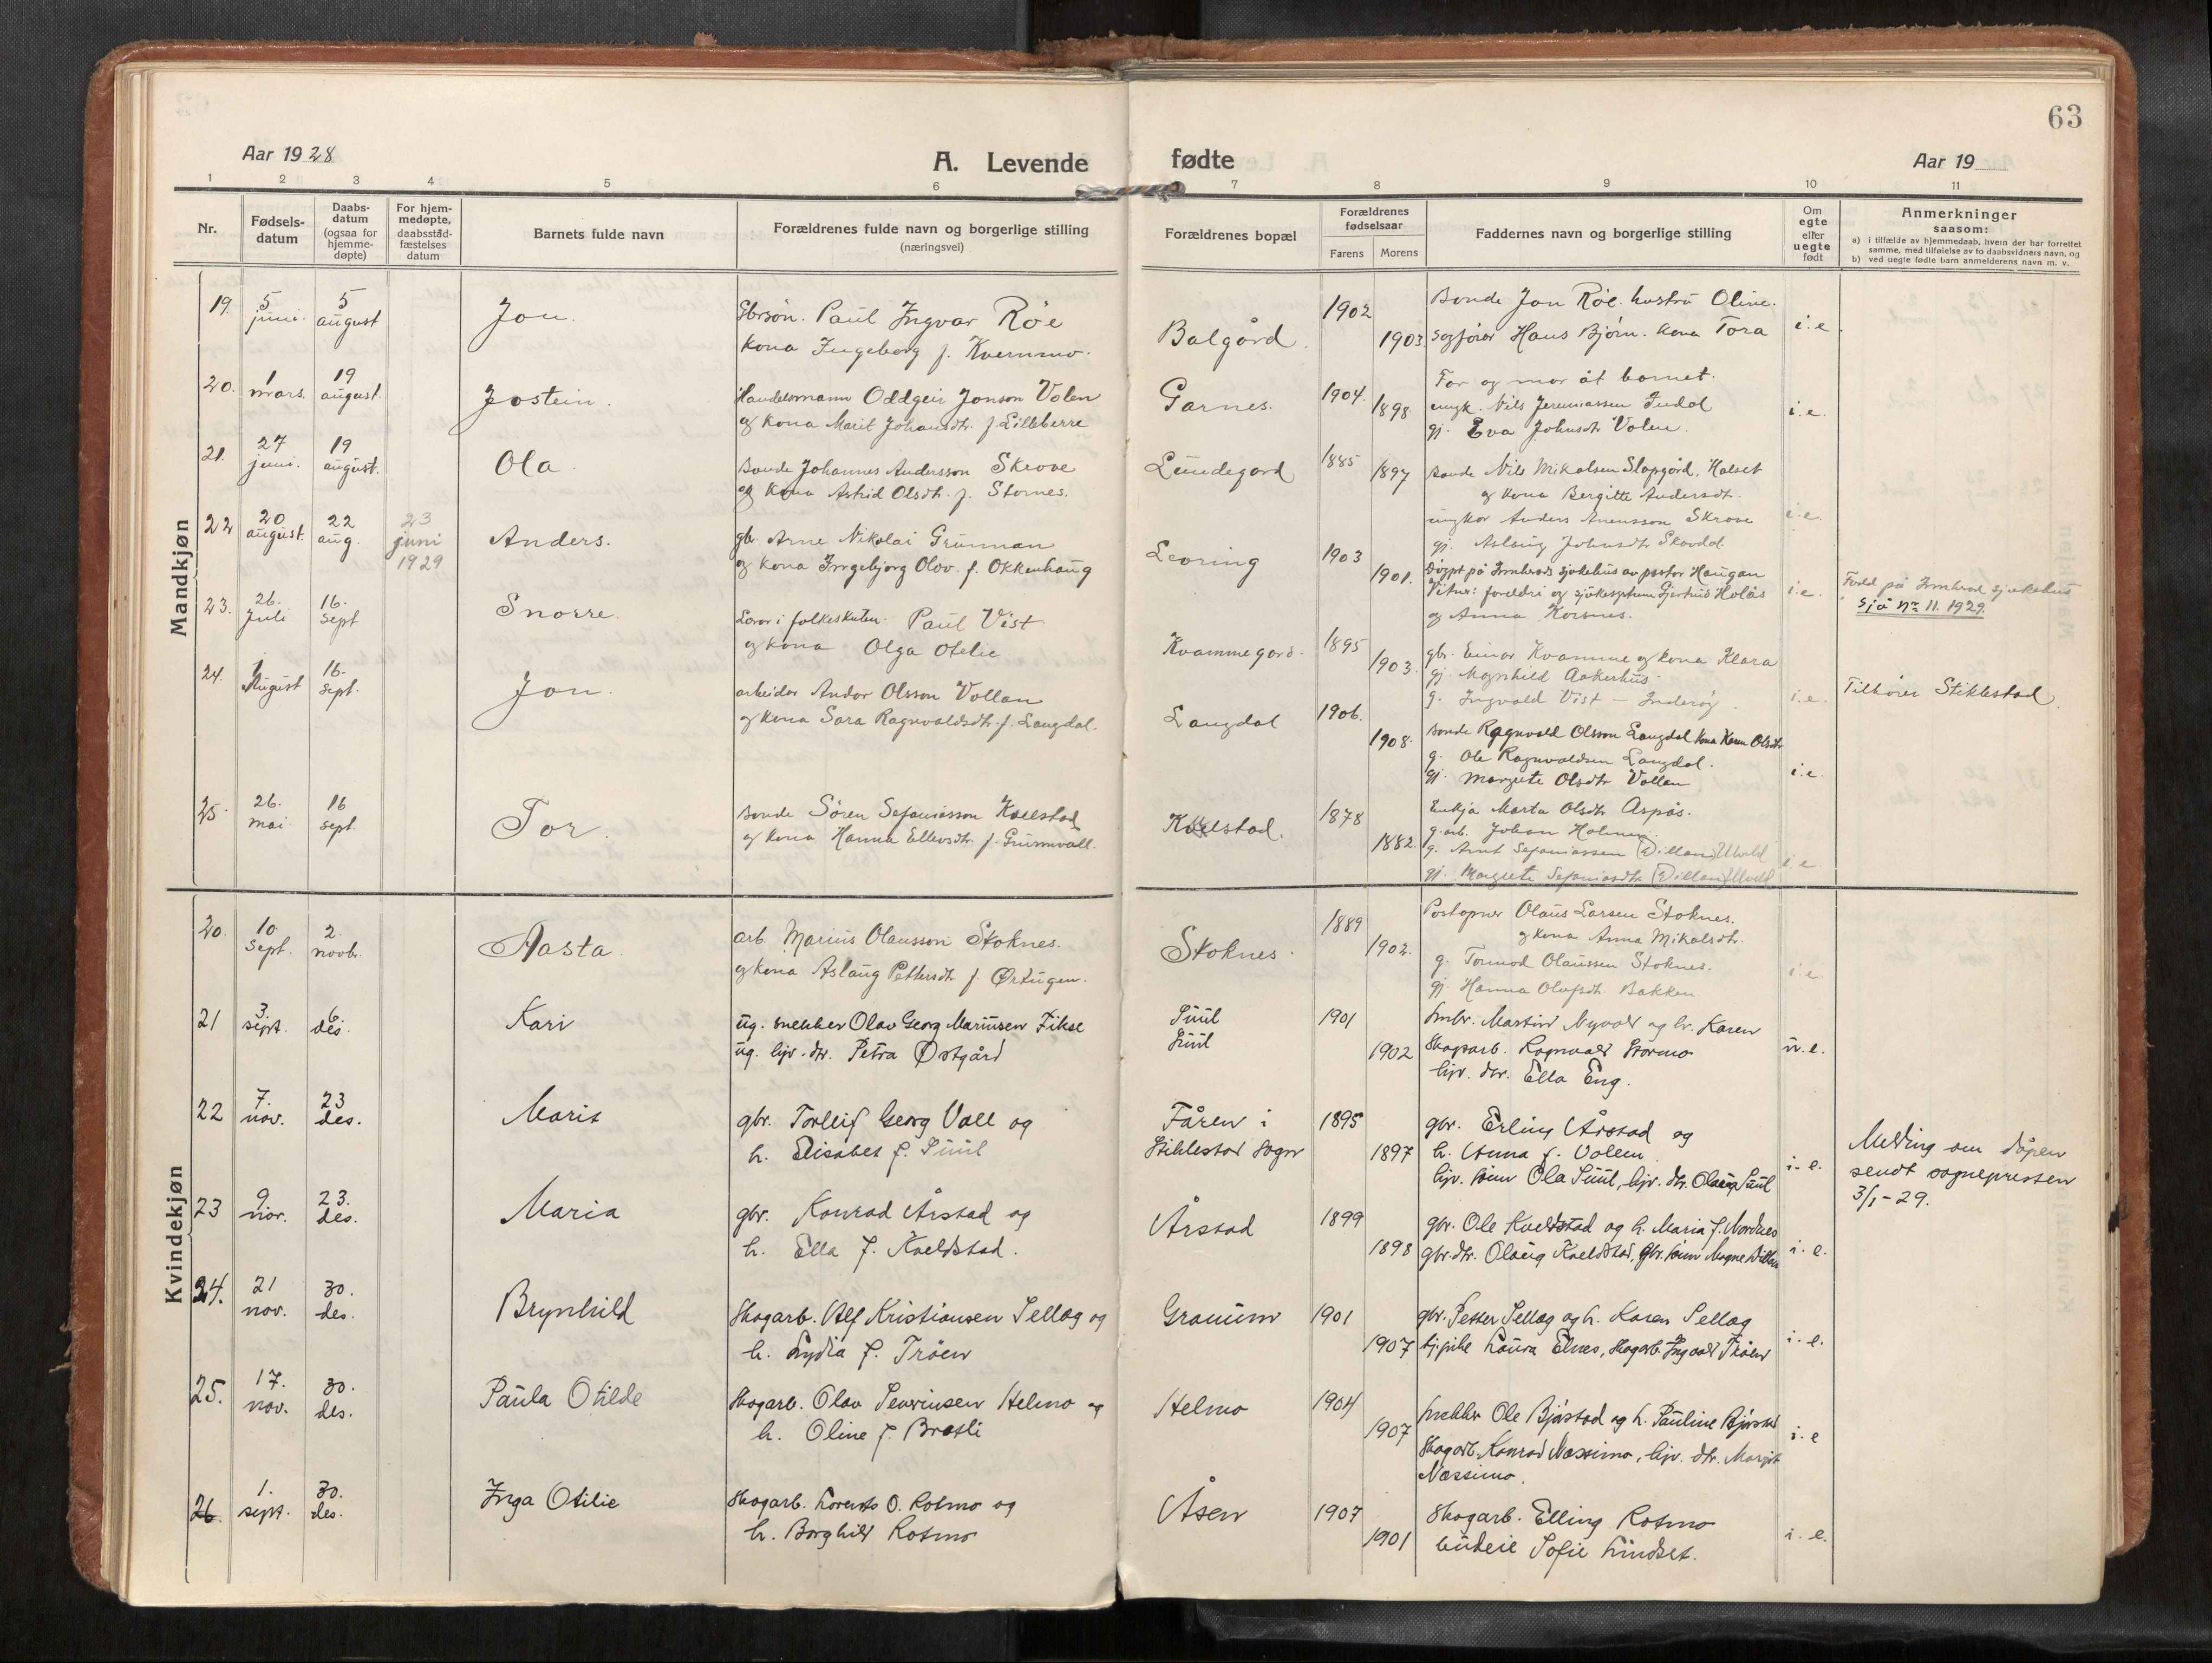 63
Aar 1928
A. Levende fødte
Aar 19
1 2 3 4 5 6 7 8 9 10 11
Nr.
Fødsels-
datum
Daabs-
datum
(ogsaa for
hjemme-
døpte)
For hjem-
medøpte,
daabsstad-
fæstelses
datum
Barnets fulde navn
Forældrenes fulde navn og borgerlige stilling
(næringsvei)
Forældrenes bopæl
Forældrenes
fødselsaar
Farens Morens
Faddernes navn og borgerlige stilling
Om
egte
eller
uegte
født
Anmerkninger
saasom:
a) i tilfælde av hjemmedaab, hvem der har forrettet
samme, med tilføielse av to daabsvidners navn, og
b) ved uegte fødte barn anmelderens navn m. v.
Mandkjøn
19. 5 juni. 5 august Jon.
Gbrsøn. Paul Ingvar Røe
kona Ingeborg f. Kvernmo.
Balgård. 1902 1903.
Bonde Jon Røe. hustru Oline.
Sogfører Hans Bjørn. kona Tora
i.e.
20. 1 mars. 19 august. Jostein.
Handelsmann Oddgeir Jonson Volen
og kona Marit Johansdtr. f. Lilleberre
Garnes. 1904. 1898.
Far og mor åt barnet.
ungk. Nils Jeremiassen Indal
gj. Eva Johnsdtr Volen.
i.e.
21. 27 juni. 19 august. Ola.
Bonde Johannes Andersson Skrove
og kona Astrid Olsdtr. f. Stornes.
Lundegard 1885 1897
Bonde Nils Mikalsen Slapgård, Halset
og kona Bergitte Andersdtr.
ungkar Anders Arnesson Skrove
gj. Aslaug Johnsdtr Skavdal
i.e.
22 20 august. 22 aug. 23 juni 1929 Anders.
gbr. Arne Nikolai Grunnan
og kona Ingebjørg Olov. f. Okkenhaug
Leoring 1903 1901.
Døypt på Innherad sjukehus av pastor Haugan
Vitner: foreldri og sjukesystrene Gjertrud Holås
og Anna Korsnes.
i.e.
Født på Innherad sjukehus
Sjå nr. 11. 1929.
23. 26. Juli 16. Sept Snorre.
Lærar i folkeskulen. Paul Vist
og kona Olga Otelie
Kvammegard. 1895 1903.
gbr. Einar Kvamme og kona Klara
gj. Magnhild Aakerhus
g. Ingvald Vist — Inderøy.
i.e.
Tilhører Stiklestad.
24. 1 August 16. Sept. Jon.
arbeider Andor Olsson Vollan
og kona Sara Ragnvaldsdtr. f. Langdal.
Langdal 1906. 1908.
Bonde Ragnvald Olsson Langdal kona Karen Olsdtr
g. Ole Ragnvaldsen Langdal.
gj. Margrete Olsdtr Vollan
i.e.
25. 26. mai 16 sept. Tor.
Bonde Søren Sefaniasson Kvelstad
og kona Hanna Ellevsdtr. f. Grunnvall.
Kvelstad. 1878 1882.
Enkja Marta Olsdtr Aspås.
g. arb. Johan Holmen.
g. Arnt Sefaniassen (Dillan) Ulvild
gj. Margrete Sefaniasdtr (Dillan) Ulvild
i.e.
Kvindekjøn
20. 10. Sept. 2. novbr. Aasta.
arb. Marius Olausson Stoknes.
og kona Aslaug Pettersdtr f. Ørtugen.
Stoknes. 1889 1902.
Postopner Olaus Larsen Stoknes.
og kona Anna Mikalsdtr.
g. Tormod Olaussen Stoknes.
gj. Hanna Olufsdtr. Bakken
i.e.
21 3. sept. 6. des. Kari
ug. snekker Olav Georg Mariusen Fikse
ug. hjv. dtr. Petra Østgård
Suul
Suul 1901 1902
Smbr. Martin Nyvold og h. Karen
Skogarb. Ragnvald Stormo
hjv. dtr. Ella Eng.
u.e.
22 7. nov. 23 des. Marit
gbr. Torleif Georg Vall og
h. Elisabet f. Suul
Fåren i
Stiklestad sogn 1895 1897
gbr. Erling Årstad og
h. Anna f. Vollen
hjv. sønn Ola Suul, hjv. dtr. Olaug Suul
i.e.
Melding om dåpen
sendt sognepresten
3/1-29.
23 9. nov. 23. des. Maria
gbr. Konrad Årstad og
h. Ella f. Kveldstad.
Årstad 1899 1898
gbr. Ole Kveldstad og h. Maria f. Nordnes
gbr.dtr. Olaug Kveldstad, gbr. sønn Magne Dillan
i.e.
24. 21 nov. 30. des. Brynhild
Skogarb. Alf Kristiansen Sellæg og
h. Lydia f. Trøen
Granum 1901 1907
gbr. Petter Sellæg og h. Karen Sellæg
tj.pike Laura Elnes, Skogarb. Ingvald Trøen
i.e.
25. 17. nov. 30. des. Paula Otilde
Skogarb. Olav Severinsen Helmo og
h. Oline f. Bratli
Helmo 1904 1907
snekker Ole Bjåstad og h. Pauline Bjåstad
Skogarb. Konrad Næssimo, hjv. dtr. Margit
Næssimo.
i.e
26. 1. sept. 30. des. Inga Otilie
Skogarb. Lorents O. Rotmo og
h. Borghild Rotmo
Åsen 1907 1901
Skogarb. Elling Rotmo
budeie Sofie Lindset.
i.e.